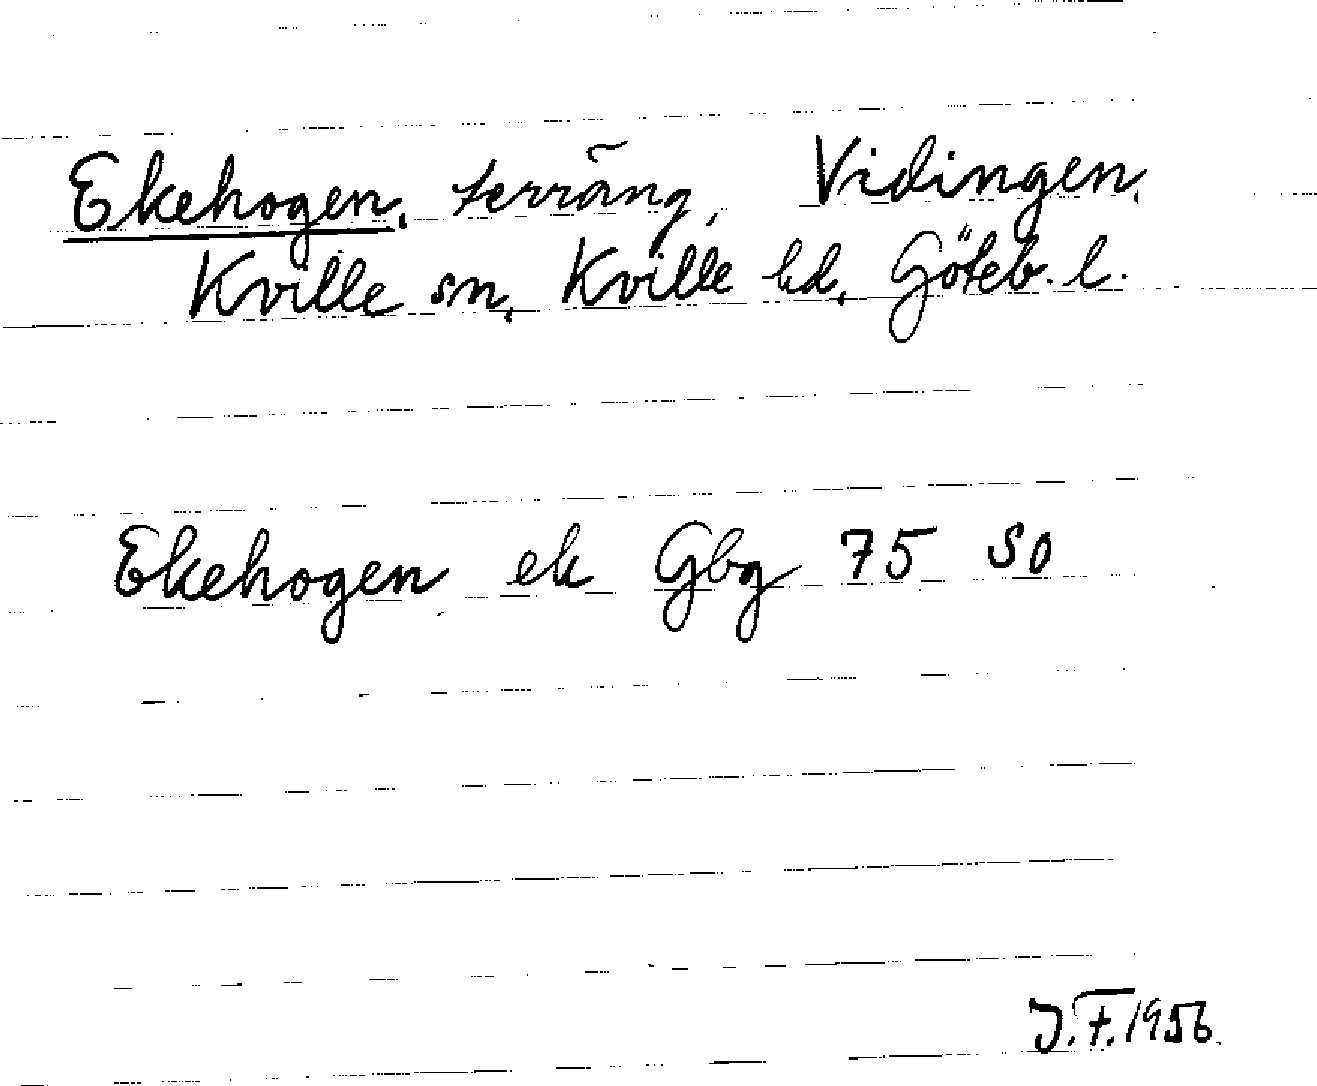 Ekehogen, terräng, Vidingen,
Kville sn, Kville hd, Göteb. l.
Ekehogen ek Gbg 75 SO
J.F. 1956